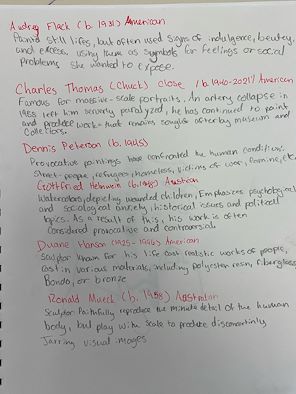 Audrey Flack (b. 1931) American
Paints still lifes, but often used signs of indulgence, beutey,
and excess, using them as symbols for feelings or social
problems she wanted to expose.
Charles Thomas (Chuck) Close (b. 1940-2021) American
Famous for massive-scale portraits. An artery collapse in
1988 left him severly paralyzed, he has continued to paint
and produce work that remains sought after by museum and
collectors.
Dennis Peterson (b. 1945)
Provocative paintings have confronted the human condition.
Street-people, refugees, homeless, victims of war, famine, etc.
Gottfried Helnwein (b. 1948) Austrian
Watercolors, depicting wounded children, Emphasizes psychological
and sociological anxiety, historical issues and political
topics. As a result of this, his work is often
Considered provocative and controversial
Duane Hanson (1925-1996) American
Sculptor known for his life cast realistic works of people,
cast in various materials, including polyester resin, fiberglass,
Bondo, or bronze
Ronald Mueck (b. 1958) Australian
Sculptor Faithfully reproduce the minute detail of the human
body, but play with scale to produce
Jarring visual images